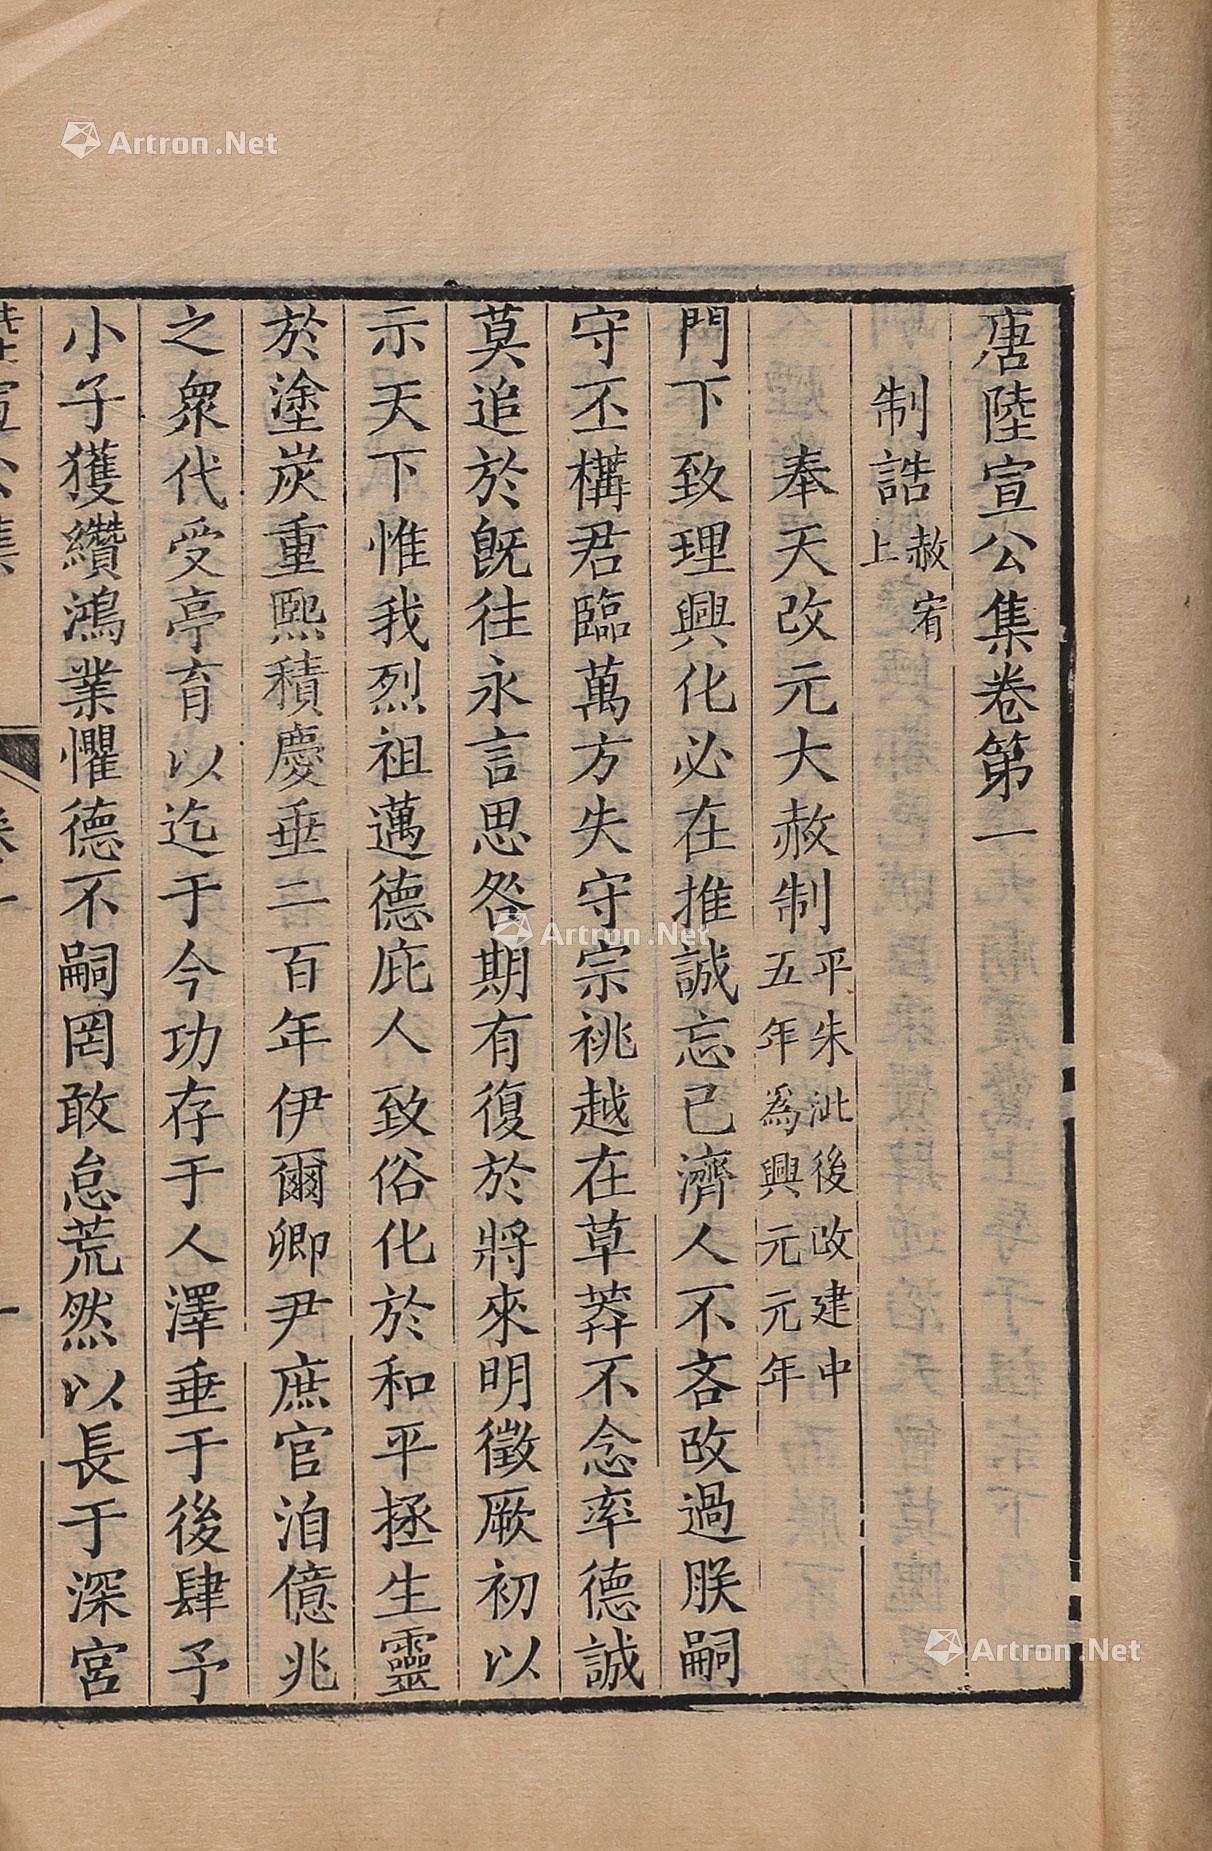 唐陸宣公集卷第一
制誥赦宥上
奉天改元大赦制平朱泚後改建中五年為興元元年
門下致理興化必在推誠忘已濟人不吝改過朕嗣
守丕構君臨萬方失守宗祧越在草莽不念率德誠
莫追於既往永言思咎期有復於將來明徵厥初以
示天下惟我烈祖邁德庇人致俗化於和平拯生靈
於塗炭重熙積慶垂二百年伊爾卿尹庶官洎億兆
之衆代受亭育以迄于今功存于人澤垂于後肆予
小子獲纘鴻業懼德不嗣罔敢怠荒然以長于深宮
Artron.Net
Artron.Net
Artron.Net